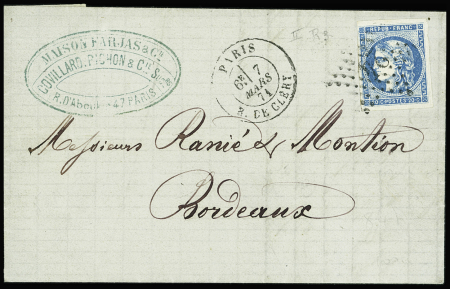 MAISON FARJAS & Cie
COVILLARD, PICHON & Cie Srs
R. D'Aboukir 47 PARIS
PARIS
6E/ 7
MARS
71
R. DE CLERY
II R3
REPUB. FRANC.
20 CENTIMES 20
Messieurs Ranié & Montion
Bordeaux